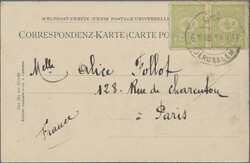 WELTPOST-VEREIN (UNION POSTALE UNIVERSELLE)
CORRESPONDENZ-KARTE (CARTE POSTALE)
JERUSALEM
Melle Alice Follot
128 - Rue de Charenton
à Paris
France